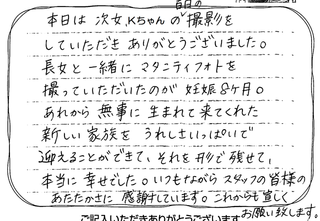 百日の
本日は 次女、Kちゃんの撮影を
していただき ありがとうございました。
長女と一緒に マタニティフォトを
撮っていただいたのが 妊娠8ヶ月。
あれから 無事に 生まれて来てくれた
新しい家族を うれしさいっぱいで
迎えることができて、それを形で残せて、
本当に 幸せでした。いつもながら スタッフの皆様の
あたたかさに 感謝しています。これからも宜しく
お願い致します。
ご記入いただきありがとうございます